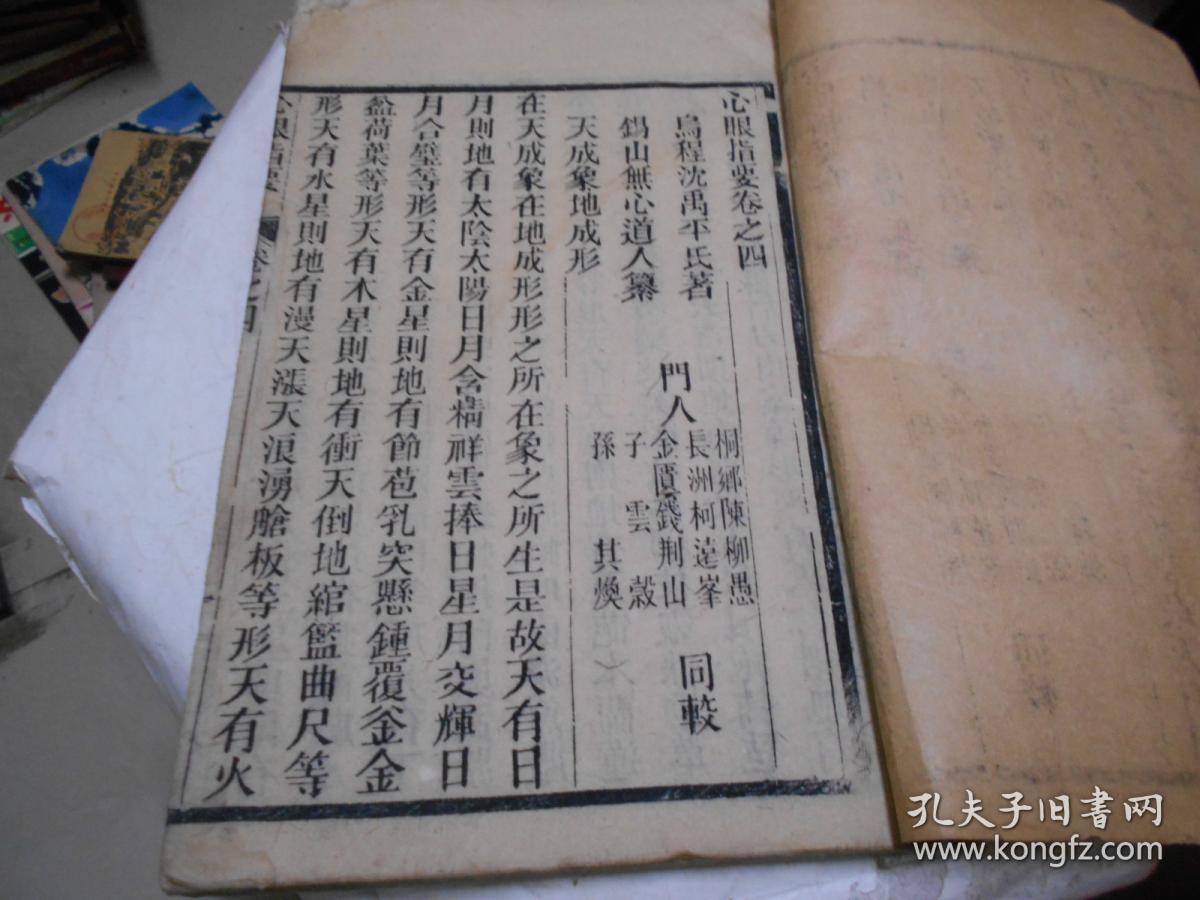 心眼指要卷之四
烏程沈禹平氏著
錫山無心道人纂
門人
桐鄉陳柳愚
長洲柯遠峯
金匱錢荆山
子雲穀
孫其煥
同較
天成象地成形
在天成象在地成形形之所在象之所生是故天有日
月則地有太陰太陽日月含精祥雲捧日星月交輝日
月合璧等形天有金星則地有節苞乳突懸鍾覆釜金
盌荷葉等形天有木星則地有衝天倒地綰籃曲尺等
形天有水星則地有漫天漲天浪湧艙板等形天有火
心眼指要
卷之四
孔夫子旧书网
www.kongfz.com